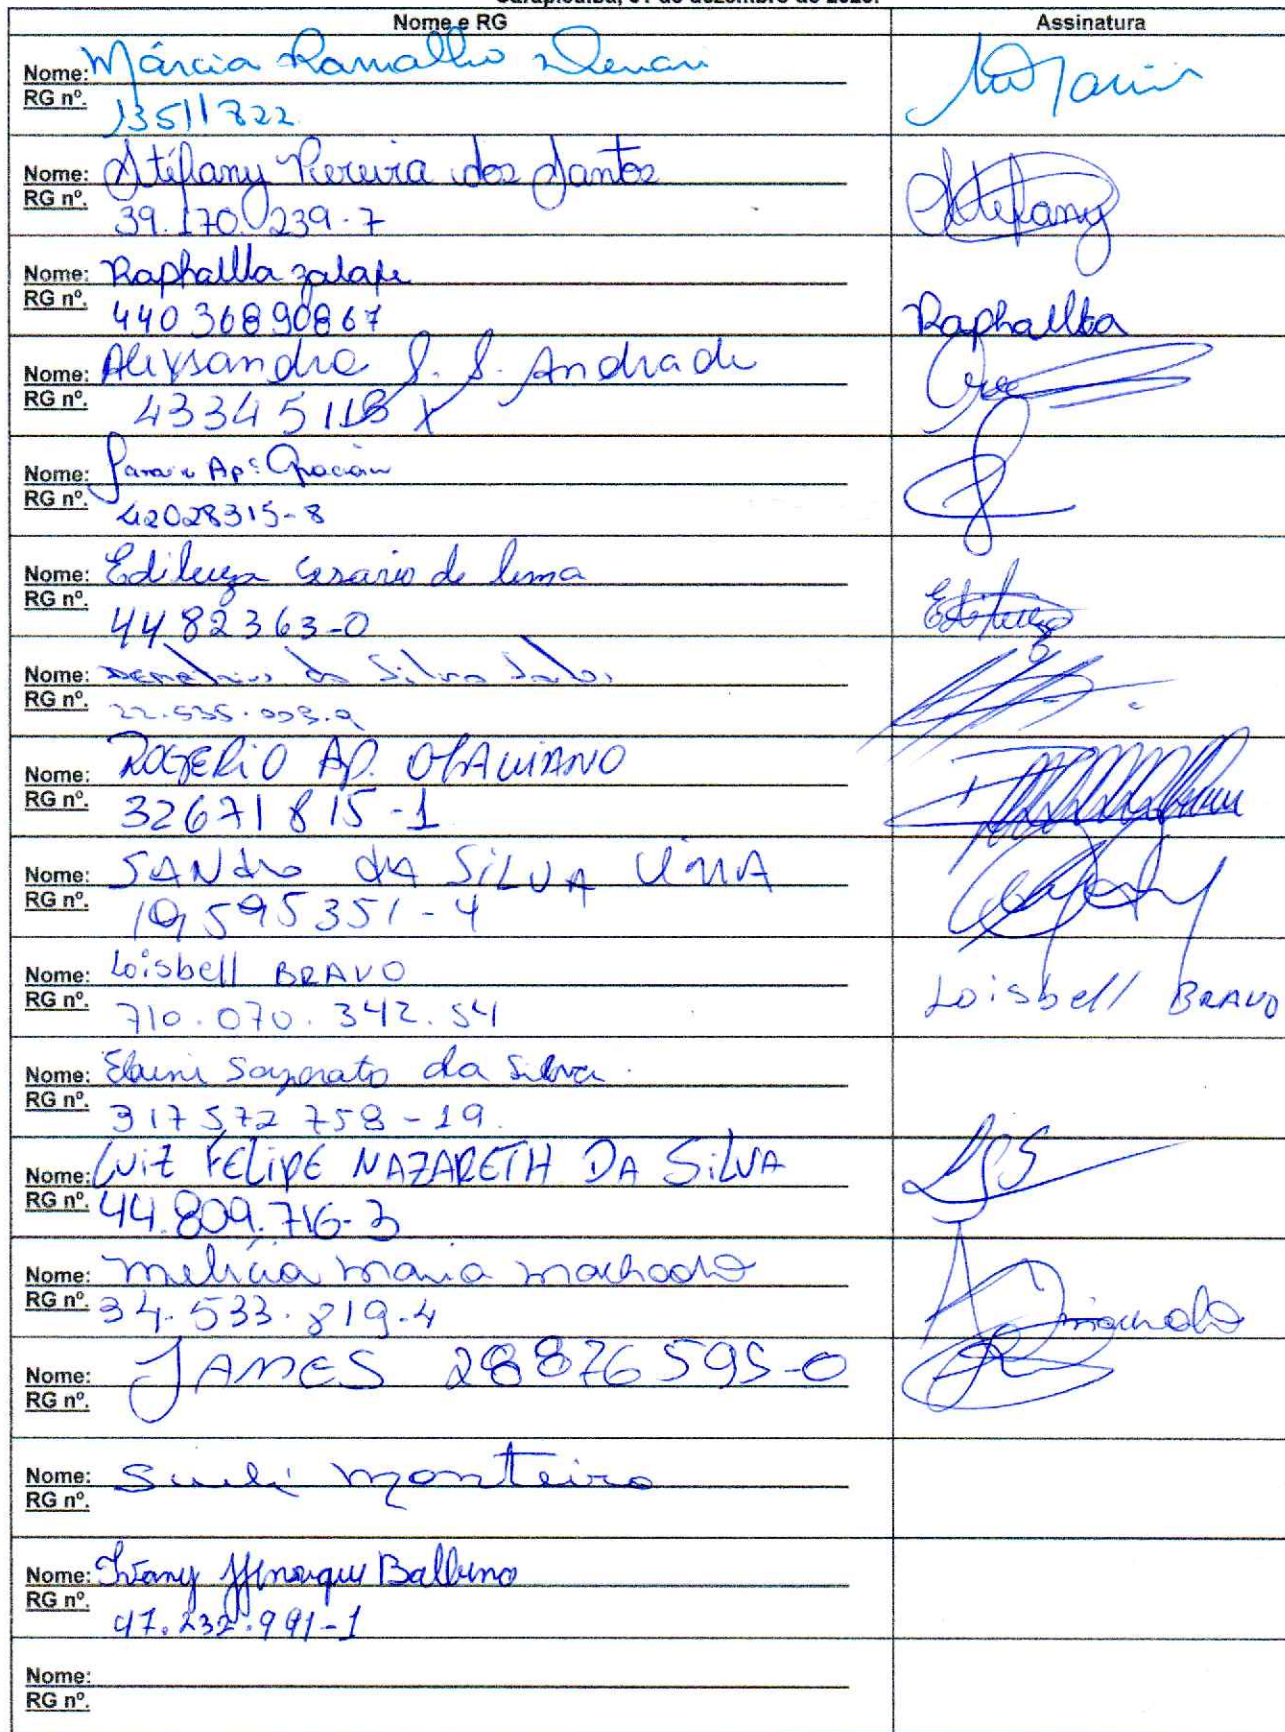 Carapicuíba, 01 de dezembro de 2023.
Nome e RG Assinatura
Nome: Márcia Ramalho
RG nº. 13511722
Nome: Stéfany Pereira dos Santos Stefany
RG nº. 39.170.239-7
Nome: Raphaella
RG nº. 44036890867 Raphaella
Nome: Alexsandra S. S. Andrade
RG nº. 43345118 X
Nome: Apª
RG nº. 42028315-8
Nome: Edileuza Cesario de lima
RG nº. 4482363-0 Edileuza
Nome: da Silva
RG nº.
Nome: ROGERIO AP. OTAVIANO
RG nº. 32671815-1
Nome: SANdro dA SiLVA LimA
RG nº. 19595351-4
Nome: Loisbell BRAVO
RG nº. 710.070.342.54 Loisbell BRAVO
Nome: Elaine da Silva
RG nº. 317572758-19
Nome: LUiZ FELIPE NAZARETH DA SiLVA
RG nº. 44.809.716-3
Nome: melicia maria machado
RG nº. 34.533.819-4 machado
Nome: JAMES 28876595-0
RG nº.
Nome: Sueli Monteiro
RG nº.
Nome: Ivany Henrique Balbino
RG nº. 47.232.991-1
Nome:
RG nº.